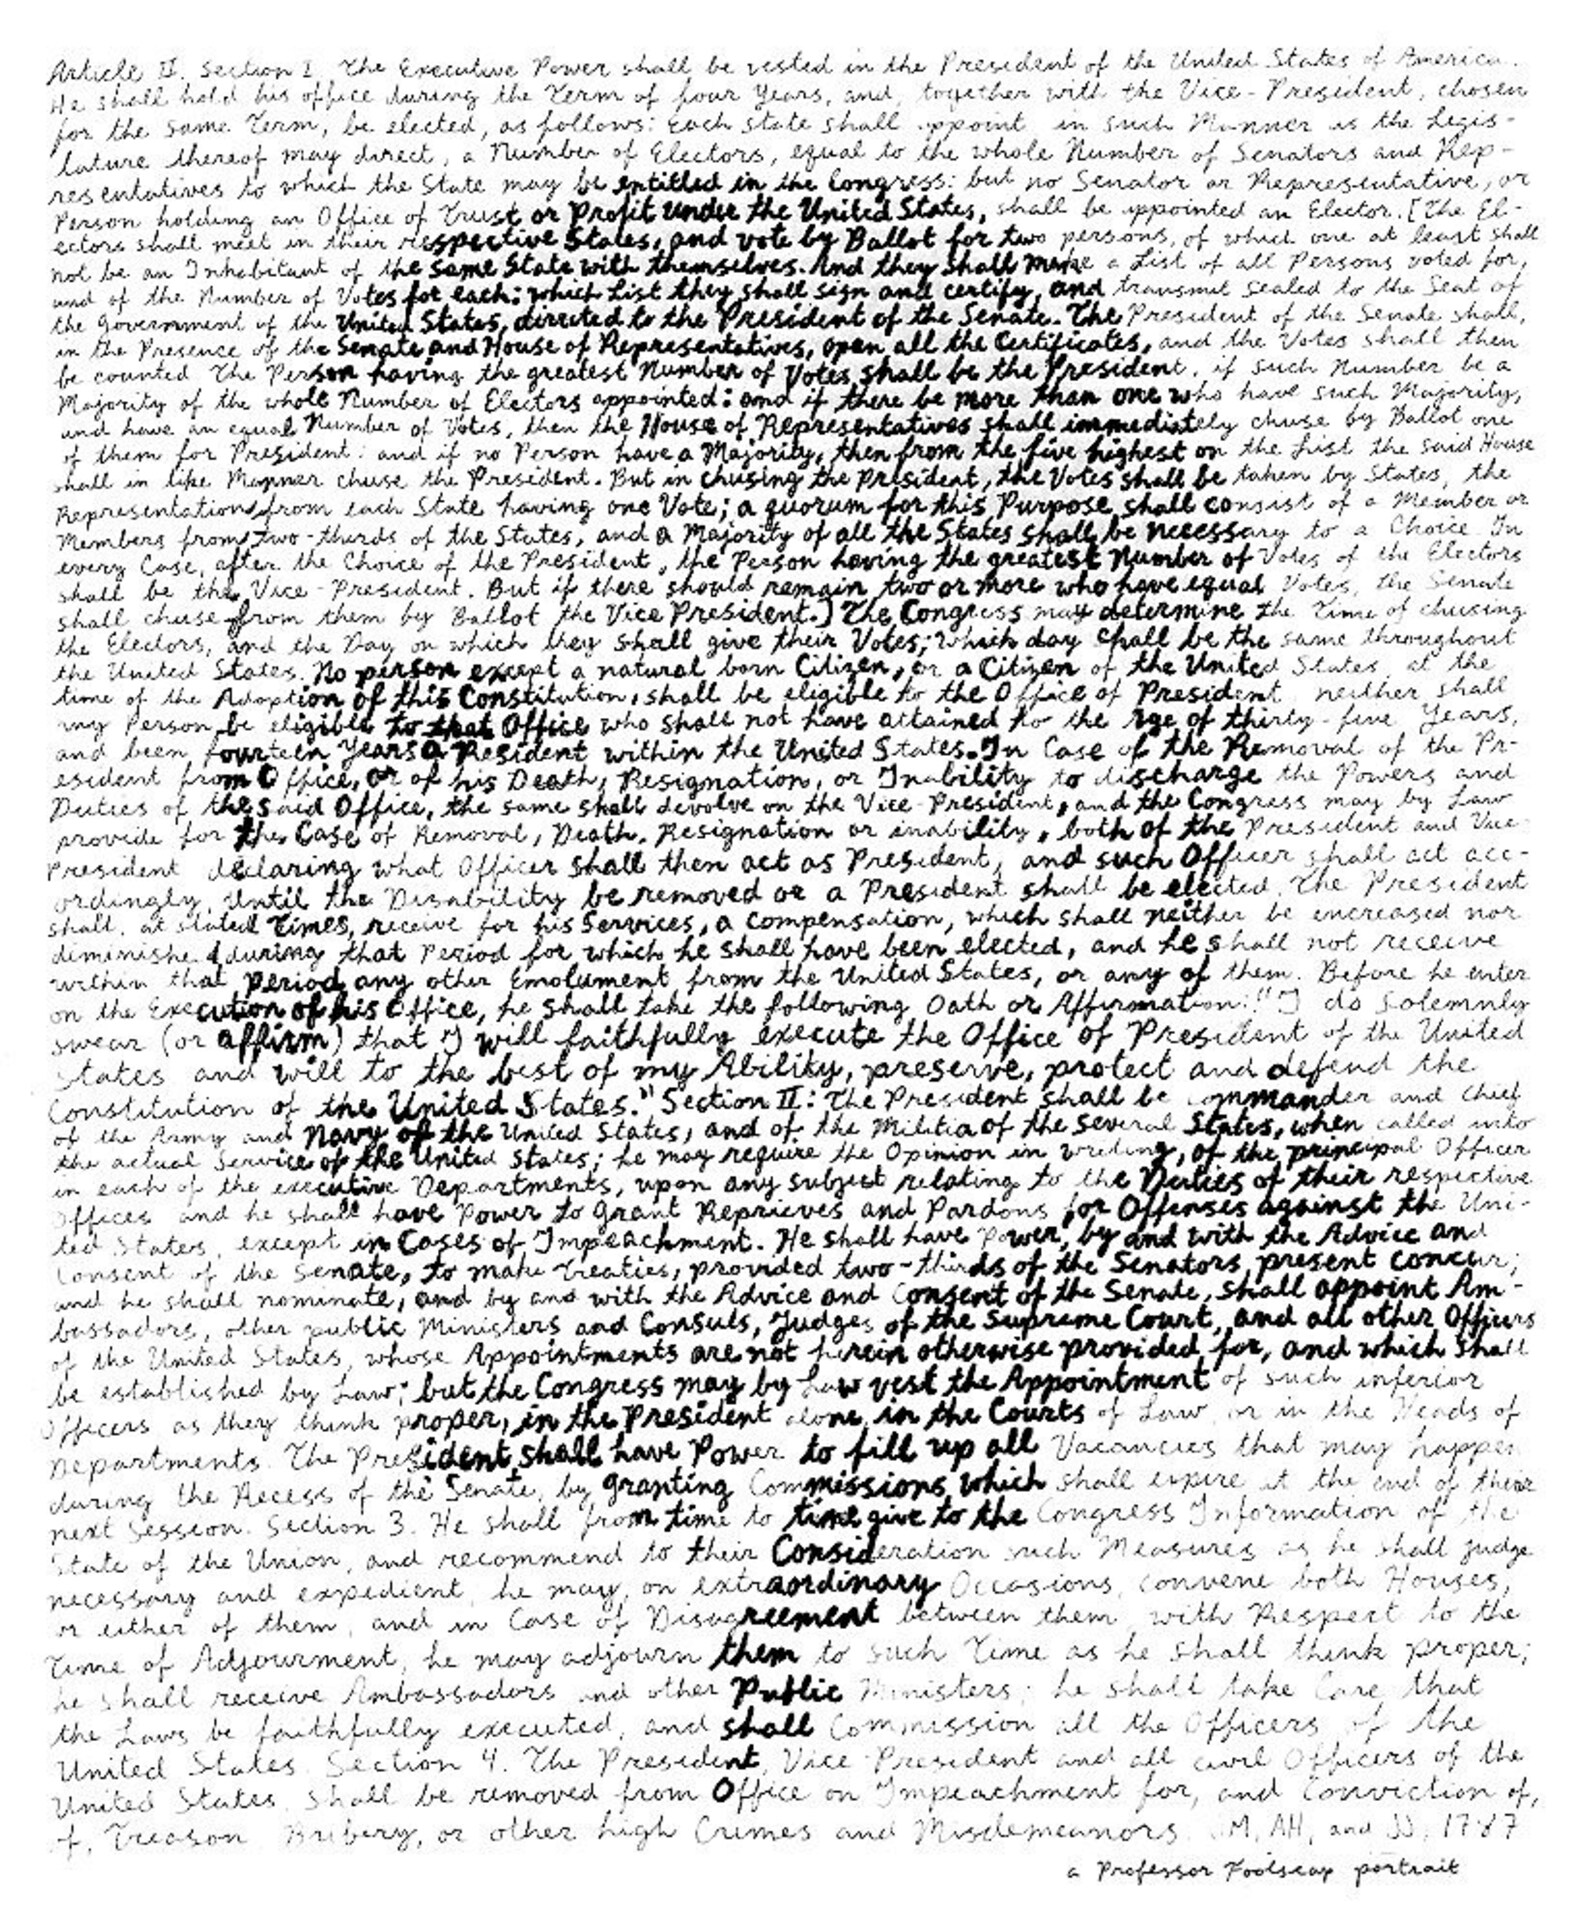 Article II. Section I. The Executive Power shall be vested in the President of the United States of America.
He shall hold his office during the Term of four Years, and, together with the Vice-President, chosen
for the same Term, be elected, as follows: Each state shall appoint in such Manner as the Legis-
lature thereof may direct, a Number of Electors, equal to the whole Number of Senators and Rep-
resentatives to which the State may be entitled in the Congress: but no Senator or Representative, or
Person holding an Office of Trust or Profit under the United States, shall be appointed an Elector. [The El-
ectors shall meet in their respective States, and vote by Ballot for two persons, of which one at least shall
not be an Inhabitant of the same State with themselves. And they shall make a List of all Persons voted for,
and of the Number of Votes for each; which List they shall sign and certify, and transmit sealed to the Seat of
the Government of the United States, directed to the President of the Senate. The President of the Senate shall,
in the Presence of the Senate and House of Representatives, open all the Certificates, and the Votes shall then
be counted The Person having the greatest Number of Votes shall be the President, if such Number be a
Majority of the whole Number of Electors appointed: and if there be more than one who have such Majority,
and have an equal Number of Votes, then the House of Representatives shall immediately chuse by Ballot one
of them for President: and if no Person have a Majority, then from the five highest on the List the said House
shall in like Manner chuse the President. But in chusing the President, the Votes shall be taken by States, the
Representation from each State having one Vote; a quorum for this Purpose shall consist of a Member or
Members from two-thirds of the States, and a Majority of all the States shall be necessary to a Choice In
every Case, after the Choice of the President, the Person having the greatest Number of Votes of the Electors
shall be the Vice-President. But if there should remain two or more who have equal Votes, the Senate
shall chuse from them by Ballot the Vice President.] The Congress may determine the Time of chusing
the Electors, and the Day on which they shall give their Votes; which day shall be the same throughout
the United States. No person except a natural born Citizen, or a Citizen of the United States at the
time of the Adoption of this Constitution, shall be eligible to the Office of President neither shall
any Person be eligible to that Office who shall not have attained to the Age of thirty-five Years,
and been fourteen Years a Resident within the United States. In Case of the Removal of the Pr-
esident from Office, or of his Death, Resignation, or Inability to discharge the Powers and
Duties of the said Office, the same shall devolve on the Vice President, and the Congress may by Law
provide for the Case of Removal, Death, Resignation or inability, both of the President and Vice
President declaring what Officer shall then act as President, and such Officer shall act acc-
ordingly, until the Disability be removed or a President shall be elected. The President
shall, at stated Times, receive for his Services, a compensation, which shall neither be encreased nor
diminished during that Period for which he shall have been elected, and he shall not receive
within that period any other Emolument from the United States, or any of them. Before he enter
on the Execution of his Office, he shall take the following Oath or Affirmation: "I do solemnly
swear (or affirm) that I will faithfully execute the Office of President of the United
States and will to the best of my Ability, preserve, protect and defend the
Constitution of the United States." Section II: The President shall be commander and Chief
of the Army and Navy of the United States, and of the Militia of the several States, when called into
the actual Service of the United States; he may require the Opinion in writing, of the principal Officer
in each of the executive Departments, upon any subject relating to the Duties of their respective
Offices and he shall have Power to Grant Reprieves and Pardons for Offenses against the Uni-
ted States, except in Cases of Impeachment. He shall have Power, by and with the Advice and
Consent of the Senate, to make Treaties, provided two-thirds of the Senators present concur;
and he shall nominate, and by and with the Advice and Consent of the Senate, shall appoint Am-
bassadors, other public Ministers and Consuls, Judges of the Supreme Court, and all other Officers
of the United States, whose Appointments are not herein otherwise provided for, and which shall
be established by Law; but the Congress may by Law vest the Appointment of such inferior
Officers as they think proper, in the President alone, in the Courts of Law, or in the Heads of
Departments. The President shall have Power to fill up all Vacancies that may happen
during the Recess of the Senate, by granting Commissions which shall expire at the end of their
next Session. Section 3. He shall from time to time give to the Congress Information of the
State of the Union, and recommend to their Consideration such Measures as he shall judge
necessary and expedient, he may, on extraordinary Occasions, convene both Houses,
or either of them, and in Case of Disagreement between them, with Respect to the
Time of Adjourment, he may adjourn them to such Time as he shall think proper;
he shall receive Ambassadors and other Public Ministers; he shall take Care that
the Laws be faithfully executed, and shall Commission all the Officers of the
United States. Section 4. The President, Vice President and all civil Officers of the
United States shall be removed from Office on Impeachment for, and Conviction of,
of, Treason Bribery, or other high Crimes and Misdemeanors. JM, AH, and JJ, 1787
a Professor Foolscap portrait